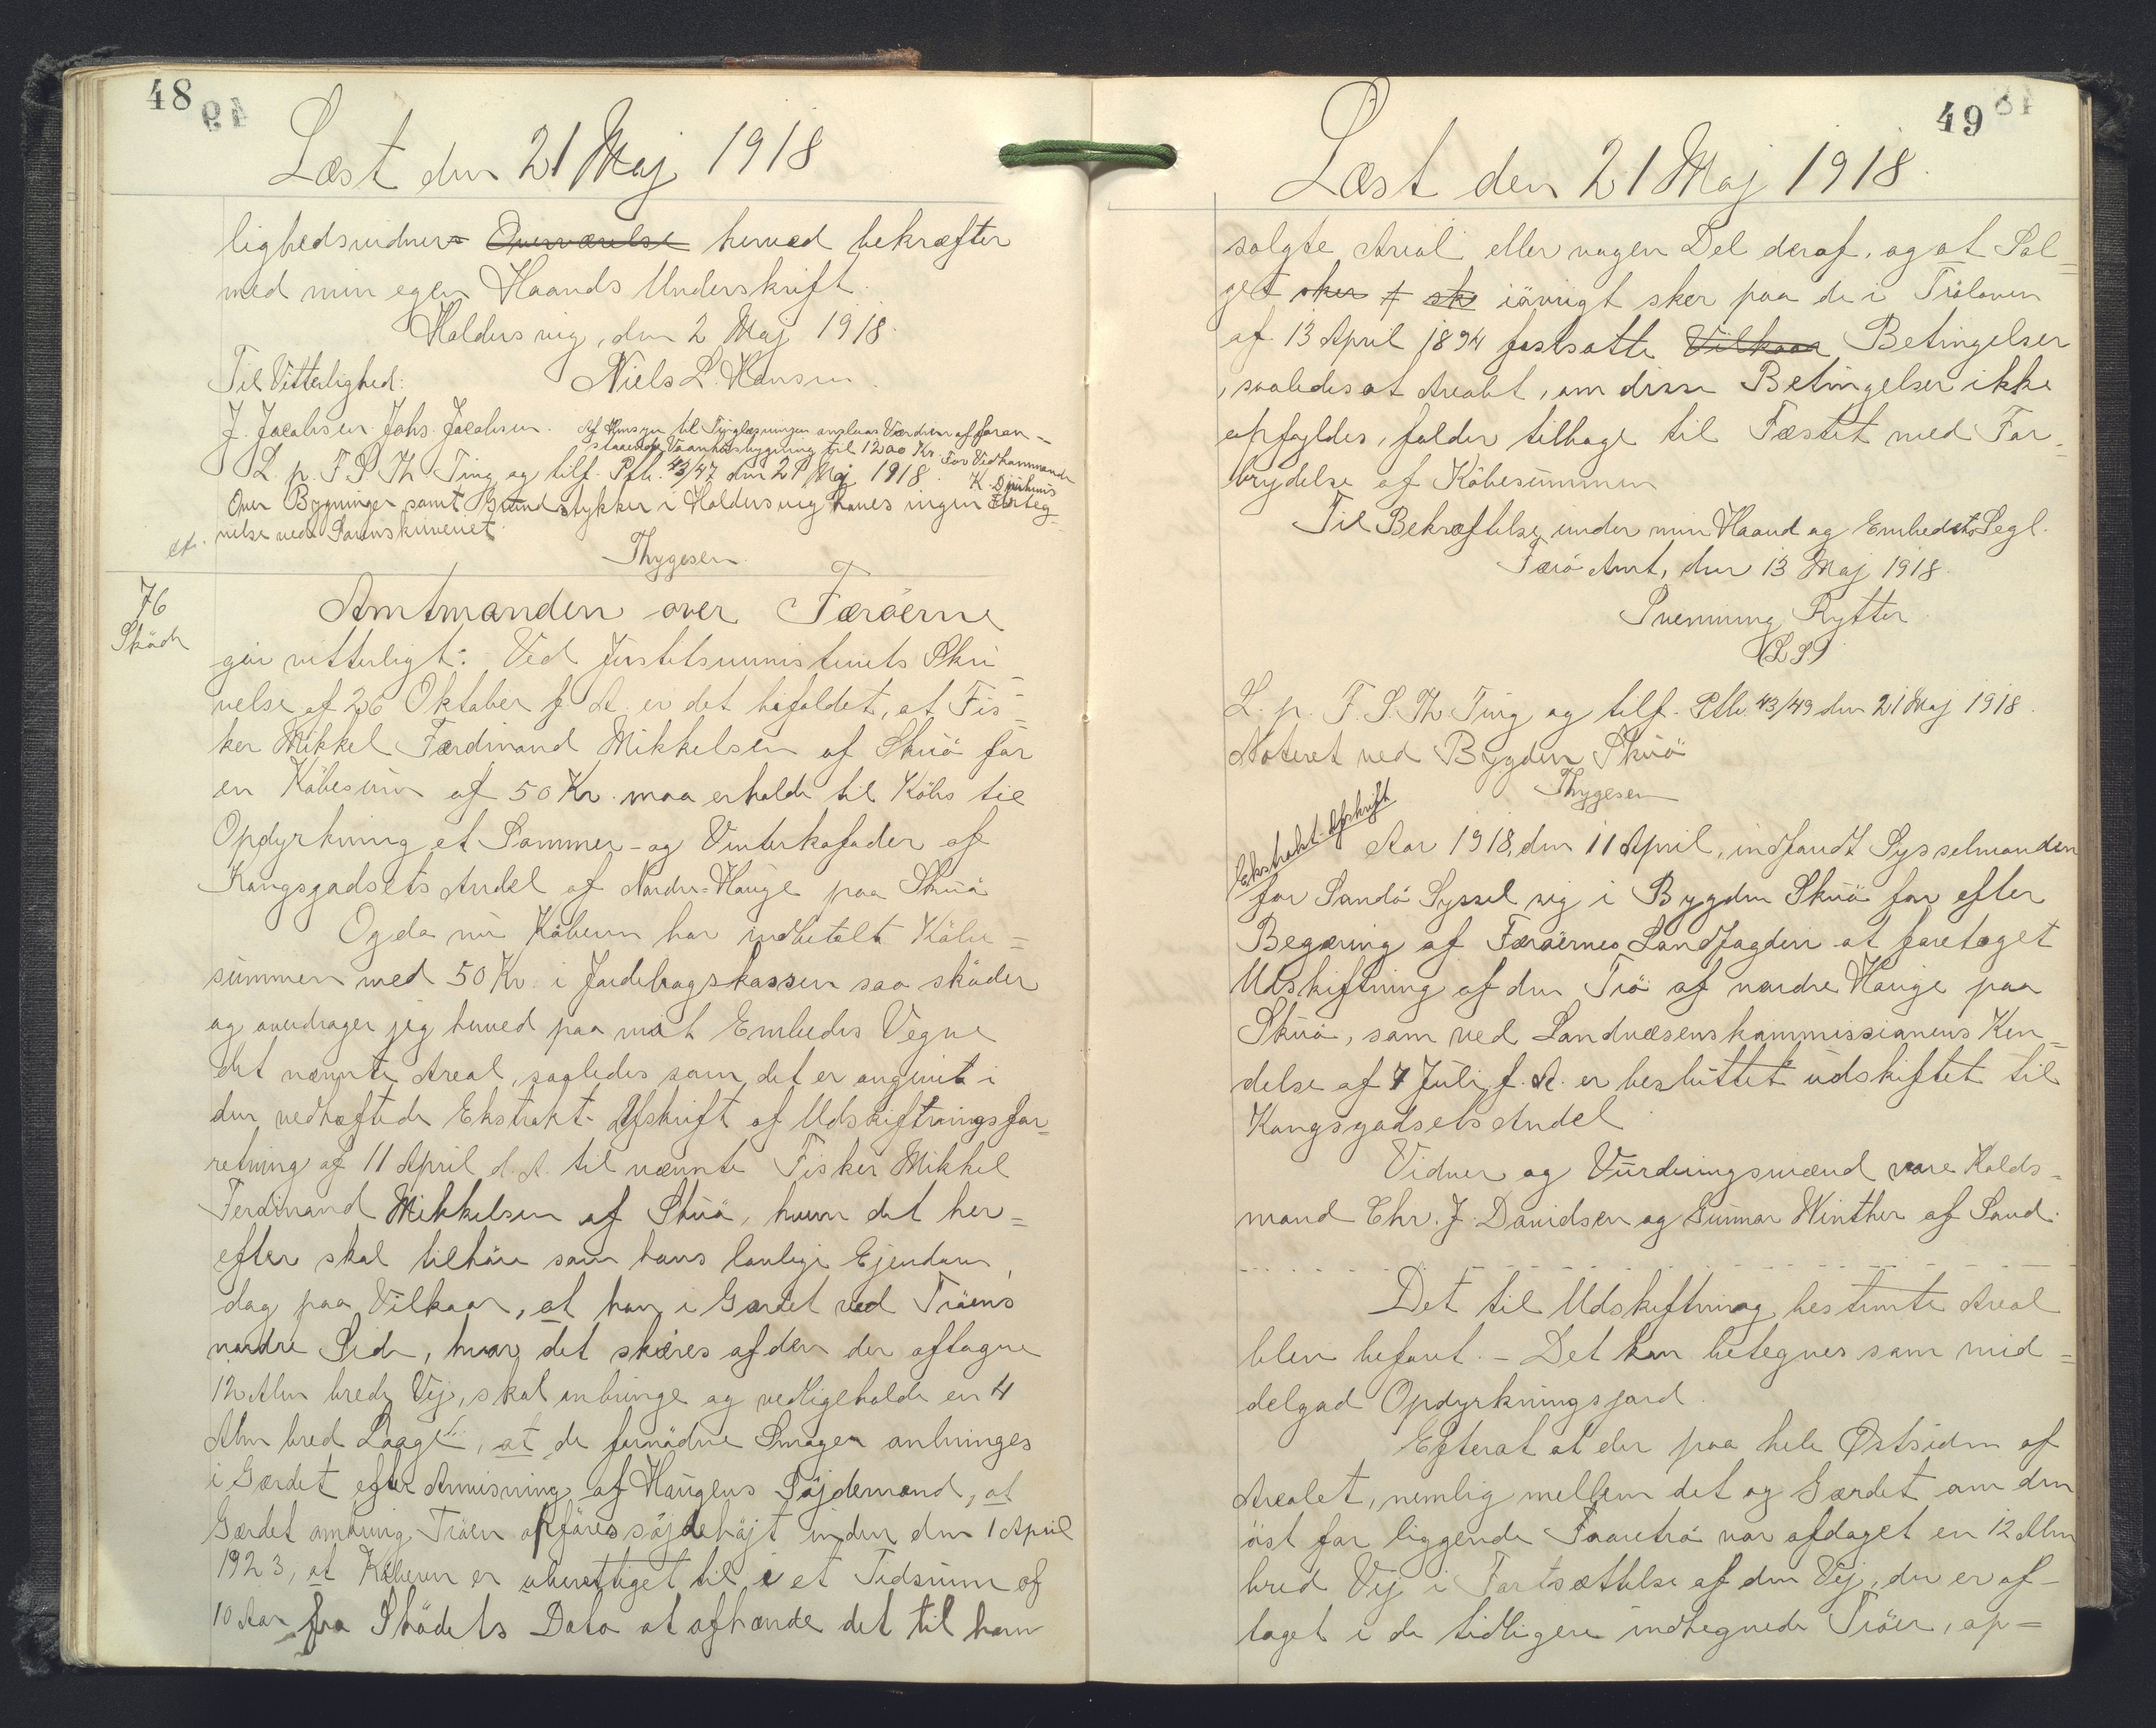 48
Læst den 21 Maj 1918
lighedsvidner Overværelse herved bekræfter
med min egen Haands Underskrift.
Haldersvig, den 2 Maj 1918.
Til Vitterlighed: Niels L. Hansen.
J. Jacobsen. Johs. Jacobsen.
Af Hensyn til Tinglæsningen ansluas Værdien af foran-
staaende Vaaningsbygning til 1200 Kr. For Vedkommende
K. Djurhuus
L. p. F. S. Th. Ting og tilf. Ptb. 43/47 den 21 Maj 1918.
Over Bygninger samt Grundstykker i Haldersvig haves ingen Forteg-
nelse ved Sorenskriveriet.
Thygesen
76
Skøde
Amtmanden over Færöerne
gör vitterligt: Ved Justitsministeriets Skri-
velse af 26 Oktober f. A. er det bifaldet, at Fis-
ker Mikkel Færdinand Mikkelsen af Skuö for
en Köbesum af 50 Kr. maa erholde til Köbs til
Opdyrkning et Sommer- og Vinterkofoder af
Kongsgodsets Andel af Nordre-Hauge paa Skuö
Og da nu Köberen har indbetalt Köbe=
summen med 50 Kr. i Jordebogskassen saa sköder
og overdrager jeg herved paa mit Embedes Vegne
det nævnte Areal, saaledes som det er angivet i
den vedhæftede Ekstrakt-Afskrift af Udskiftningsfor=
retning af 11 April d. A. til nævnte Fisker Mikkel
Ferdinand Mikkelsen af Skuö, hvem det her=
efter skal tilhöre som hans lovlige Ejendom,
dog paa Vilkaar, at han i Gærdet ved Tröens
nordre Side, hvor det skæres af den der aftagne
12 Alen brede Vej, skal anbringe og vedligeholde en 4
Alen bred Laage, at de fornödne Smoger anbringes
i Gærdet efter Anvisning af Haugens Söjdemand, at
Gærdet omkring Tröen opföres söjdehöjt inden den 1 April
1923, at Köberen er uberettiget til i et Tidsrum af
10 Aar fra Sködets Dato at afhænde det til ham
49
Læst den 21 Maj 1918.
solgte Areal eller nogen Del deraf, og at Sal=
get sker f sk iövrigt sker paa de i Trölovem
af 13 April 1894 fastsatte Vilkaar Betingelser
, saaledes at Arealet, om disse Betingelser ikke
opfyldes, falder tilbage til Fæstet med For-
brydelse af Köbesummen
Til Bekræftelse under min Haand og Embedets Segl.
Færö Amt, den 13 Maj 1918.
Svenning Rytter
(L.S.)
L. p. F. S. Th. Ting og tilf. Ptb. 43/49 den 21 Maj 1918.
Noteret ved Bygden Skuö
Thygesen
Ekstrakt-Afskrift
Aar 1918, den 11 April, indfandt Sysselmanden
for Sandö Syssel sig i Bygden Skuö for efter
Begæring af Færöernes Landfogderi at foretaget
Udskiftning af den Trö af nordre Hauge paa
Skuö, som ved Landvæsenskommissionens Ken-
delse af 7 Juli f. A. er besluttet udskiftet til
Kongsgodsets Andel
Vidner og Vurderingsmænd vare Kolds=
mand Chr. J. Davidsen og Gunnar Winther af Sand.
Det til Udskiftning bestemte Areal
blev befaret. - Det kan betegnes som mid=
delgod Opdyrkningsjord.
Efterat at der paa hele Østsiden af
Arealet, nemlig mellem det og Gærdet om den
öst for liggende Faaretrö var afdaget en 12 Alen
bred Vej i Fortsættelse af den Vej, der er af-
taget i de tidligere indhegnede Tröer, op=